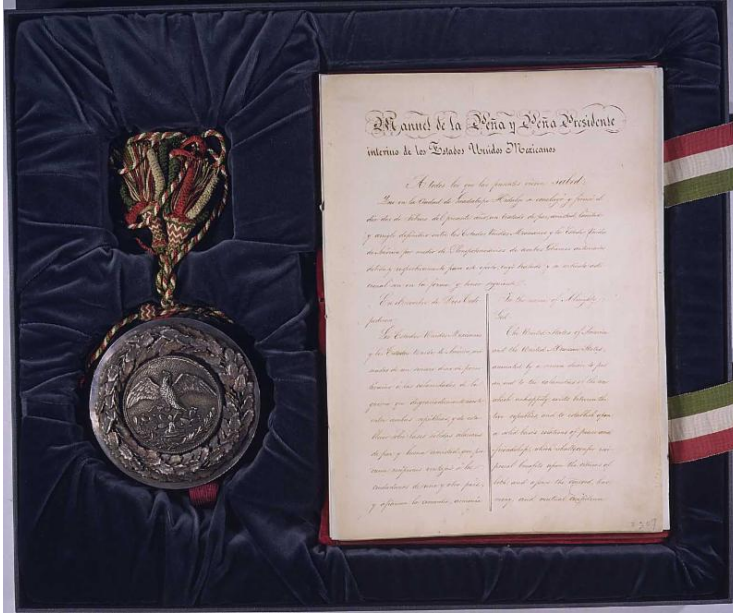 Manuel de la Peña y Peña Presidente
interino de los Estados Unidos Mexicanos
A todos los que las presentes vieren sabed:
Que en la Ciudad de Guadalupe Hidalgo se concluyó y firmó el
dia dos de Febrero del presente año, un tratado de paz, amistad, limites
y arreglo definitivo entre los Estados Unidos Mexicanos y los Estados Unidos
de América por medio de Plenipotenciarios de ambos Gobiernos autorizados
debida y respectivamente para este efecto, cuyo tratado y su articulo adi-
cional son en la forma y tenor siguiente.
En el nombre de Dios Todo-
poderoso.
Los Estados Unidos Mexicanos
y los Estados Unidos de América, ani-
mados de un sincero deseo de poner
término á las calamidades de la
guerra que desgraciadamente existe
entre ambas repúblicas, y de esta-
blecer sobre bases sólidas relaciones
de paz y buena amistad, que pro-
curen reciprocas ventajas á los
ciudadanos de uno y otro pais,
y afiancen la concordia, armonia
In the name of Almighty
God.
The United States of America
and the United Mexican States,
animated by a sincere desire to put
an end to the calamities of the war
which unhappily exists between the
two republics and to establish upon
a solid basis relations of peace and
friendship, which shall confer reci-
procal benefits upon the citizens of
both and assure the concord, har-
mony and mutual confidence